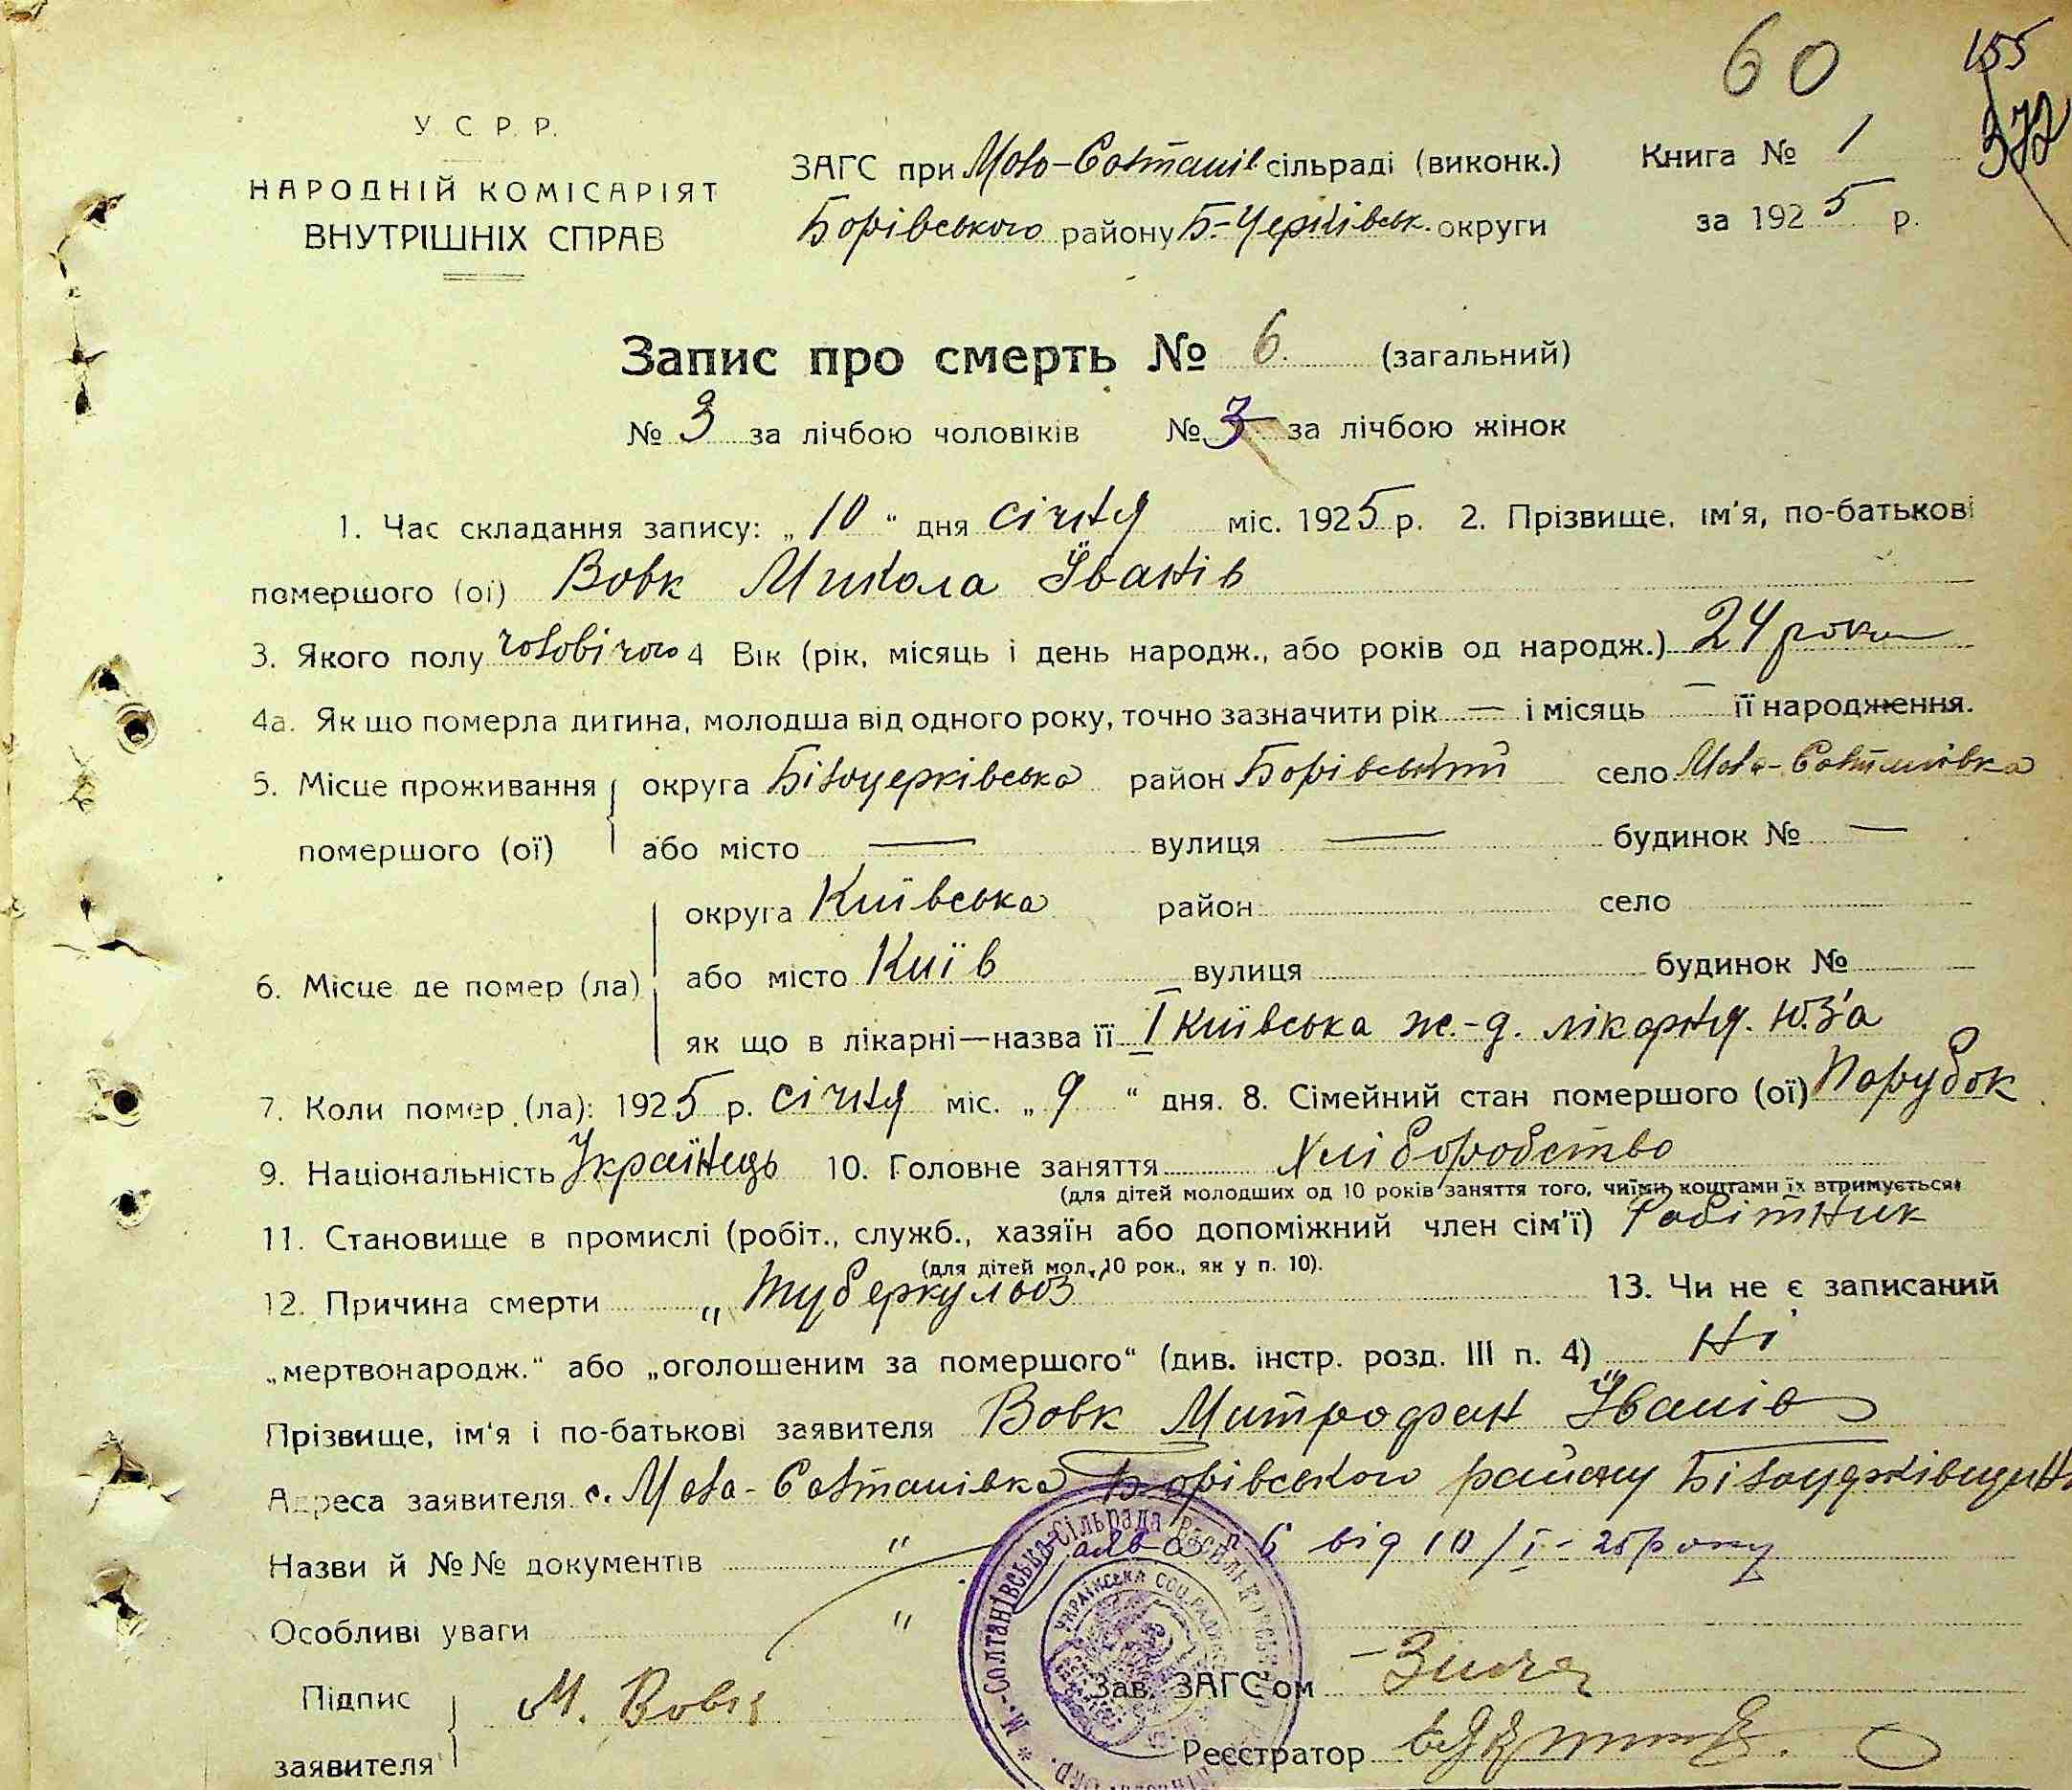 60
155
372
У. С. Р. Р.
НАРОДНІЙ КОМІСАРІЯТ
ВНУТРІШНІХ СПРАВ
ЗАГС при Мало-Солтанів сільраді (виконк.)
Борівського району Б.-Церківськ. округи
Книга № 1
за 1925 р.
Запис про смерть № 6. (загальний)
№ 3 за лічбою чоловіків № 3 за лічбою жінок
1. Час складання запису: „10“ дня січня міс. 1925 р. 2. Прізвище, ім'я, по-батькові
помершого (ої) Вовк Микола Іванів
3. Якого полу чоловічого 4 Вік (рік, місяць і день народж., або років од народж.) 24 роки
4а. Як що померла дитина, молодша від одного року, точно зазначити рік — і місяць — її народження.
5. Місце проживання округа Білоцерківська район Борівський село Мало-Солтанівка
помершого (ої) або місто — вулиця — будинок № —
округа Київська район село
6. Місце де помер (ла) або місто Київ вулиця будинок №
як що в лікарні—назва її І Київська ж.-д. лікарня. Ю.З'а
7. Коли помер (ла): 1925 р. січня міс. „9“ дня. 8. Сімейний стан помершого (ої) Парубок
9. Національність Українець 10. Головне заняття Хліборобство
(для дітей молодших од 10 років заняття того, чиїми коштами їх втримується)
11. Становище в промислі (робіт., служб., хазяїн або допоміжний член сім'ї) Робітник
(для дітей мол. 10 рок., як у п. 10).
12. Причина смерти „ Туберкульоз 13. Чи не є записаний
„мертвонародж.“ або „оголошеним за помершого“ (див. інстр. розд. III п. 4) Ні
Прізвище, ім'я і по-батькові заявителя Вовк Митрофан Іванів
Адреса заявителя с. Мало-Солтанівка Борівського району Білоцерківщини
Назви й №№ документів " заява № 6 від 10/I-25 року
Особливі уваги "
Підпис
заявителя
М. Вовк
Зав. ЗАГС'ом
Реєстратор
М.-Солтанівська Сільрада Васильківського
УКРАЇНСЬКА СОЦ. РАДЯНСЬКА